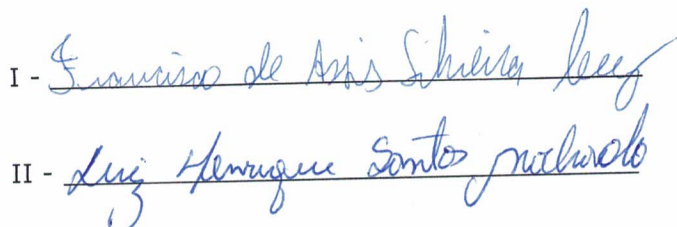 I - Francisco de Assis Silveira Cruz
II - Luiz Henrique Santos Machado